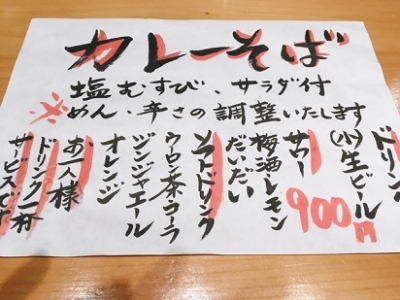 カレーそば
塩むすび、サラダ付
※めん・辛さの調整いたします
ドリンク
(小)生ビール
900円
サワー
梅酒・レモン
だいだい
ソフトドリンク
ウーロン茶・コーラ
ジンジャエール
オレンジ
お一人様
ドリンク一杯
サービスです